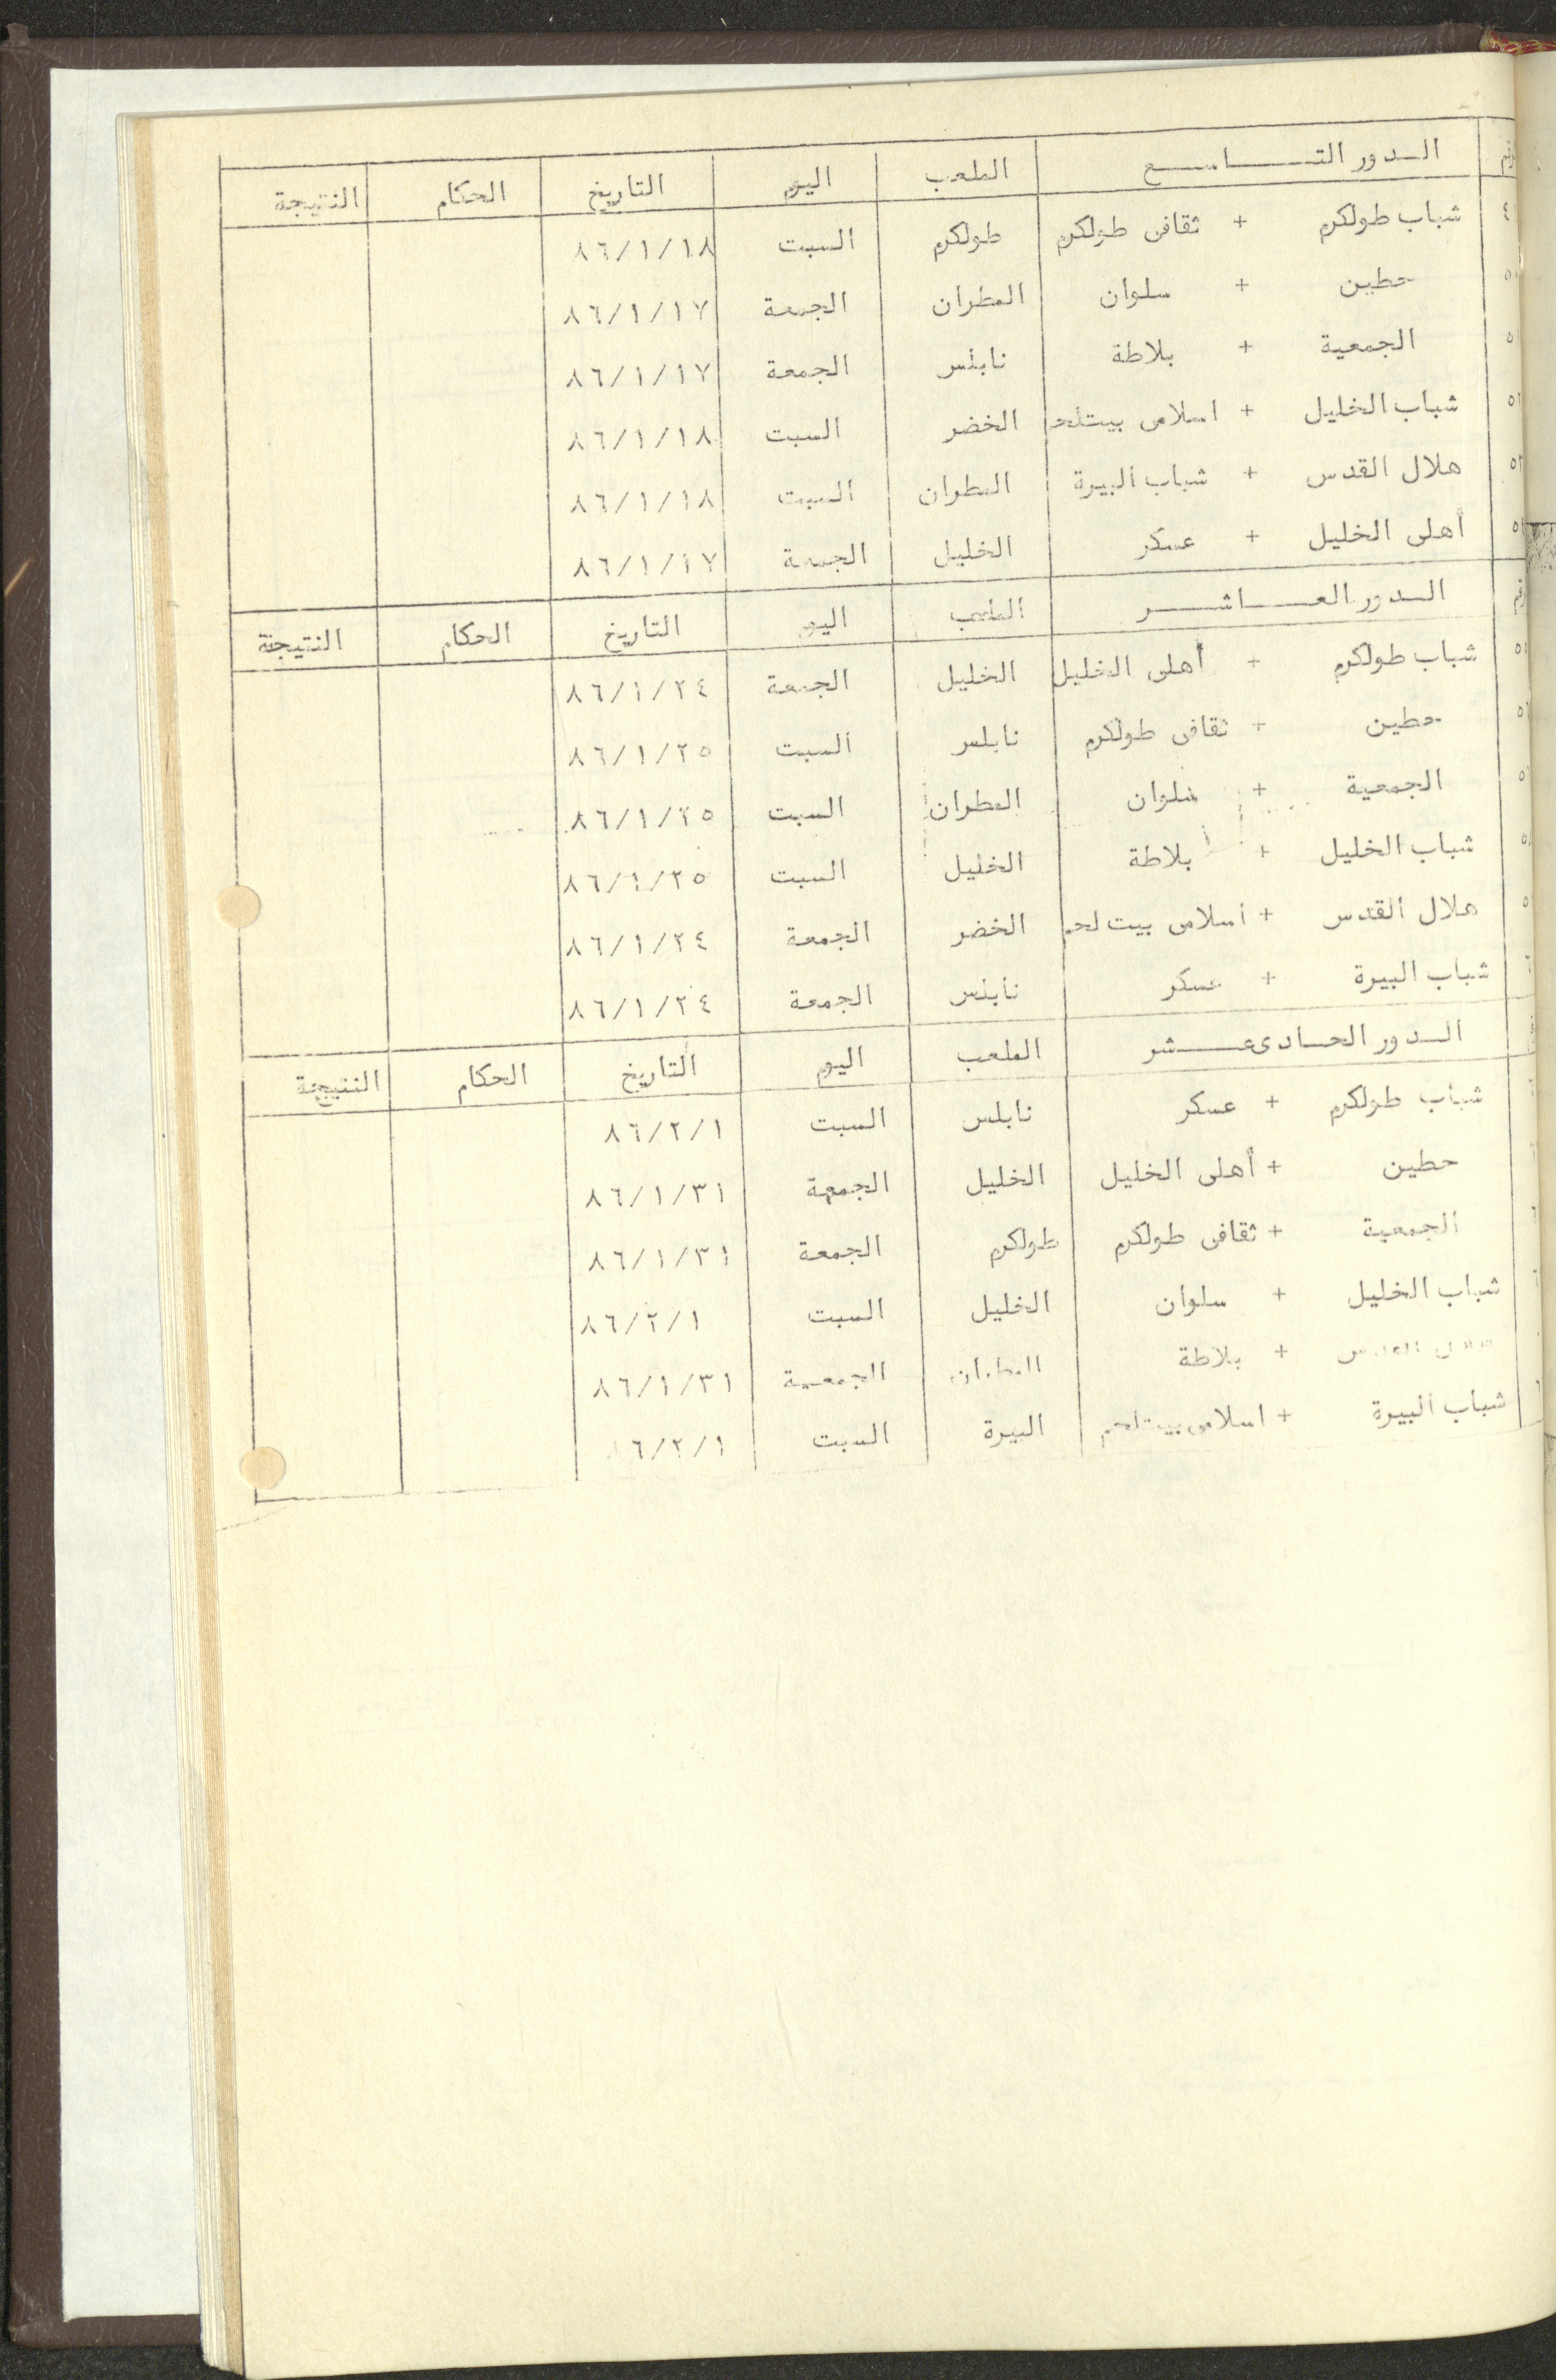 رقم الدور التاسع الملعب اليوم التاريخ الحكام النتيجة
شباب طولكرم + ثقافي طولكرم طولكرم السبت ٨٦/١/١٨
حطين + سلوان المطران الجمعة ٨٦/١/١٧
الجمعية + بلاطة نابلس الجمعة ٨٦/١/١٧
شباب الخليل + اسلامي بيت لحم الخضر السبت ٨٦/١/١٨
هلال القدس + شباب البيرة المطران السبت ٨٦/١/١٨
أهلي الخليل + عسكر الخليل الجمعة ٨٦/١/١٧
رقم الدور العاشر الملعب اليوم التاريخ الحكام النتيجة
شباب طولكرم + أهلي الخليل الخليل الجمعة ٨٦/١/٢٤
حطين + ثقافي طولكرم نابلس السبت ٨٦/١/٢٥
الجمعية + سلوان المطران السبت ٨٦/١/٢٥
شباب الخليل + بلاطة الخليل السبت ٨٦/١/٢٥
هلال القدس + اسلامي بيت لحم الخضر الجمعة ٨٦/١/٢٤
شباب البيرة + عسكر نابلس الجمعة ٨٦/١/٢٤
الدور الحادي عشر الملعب اليوم التاريخ الحكام النتيجة
شباب طولكرم + عسكر نابلس السبت ٨٦/٢/١
حطين + أهلي الخليل الخليل الجمعة ٨٦/١/٣١
الجمعية + ثقافي طولكرم طولكرم الجمعة ٨٦/١/٣١
شباب الخليل + سلوان الخليل السبت ٨٦/٢/١
هلال القدس + بلاطة المطران الجمعة ٨٦/١/٣١
شباب البيرة + اسلامي بيت لحم البيرة السبت ٦/٢/١